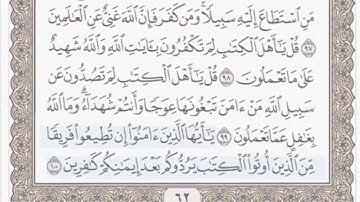 مَنِ ٱسۡتَطَاعَ إِلَيۡهِ سَبِيلٗاۚ وَمَن كَفَرَ فَإِنَّ ٱللَّهَ غَنِيٌّ عَنِ ٱلۡعَٰلَمِينَ
٩٧ قُلۡ يَٰٓأَهۡلَ ٱلۡكِتَٰبِ لِمَ تَكۡفُرُونَ بِـَٔايَٰتِ ٱللَّهِ وَٱللَّهُ شَهِيدٌ
عَلَىٰ مَا تَعۡمَلُونَ ٩٨ قُلۡ يَٰٓأَهۡلَ ٱلۡكِتَٰبِ لِمَ تَصُدُّونَ عَن
سَبِيلِ ٱللَّهِ مَنۡ ءَامَنَ تَبۡغُونَهَا عِوَجٗا وَأَنتُمۡ شُهَدَآءُۗ وَمَا ٱللَّهُ
بِغَٰفِلٍ عَمَّا تَعۡمَلُونَ ٩٩ يَٰٓأَيُّهَا ٱلَّذِينَ ءَامَنُوٓاْ إِن تُطِيعُواْ فَرِيقٗا
مِّنَ ٱلَّذِينَ أُوتُواْ ٱلۡكِتَٰبَ يَرُدُّوكُم بَعۡدَ إِيمَٰنِكُمۡ كَٰفِرِينَ ١٠٠
٦٢